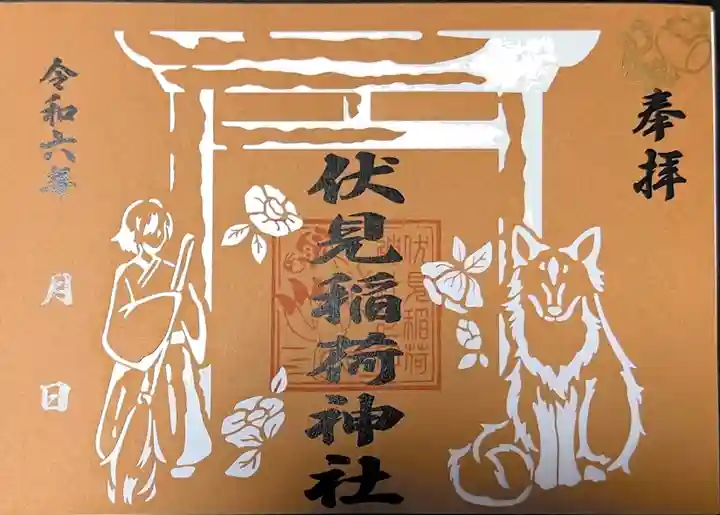 奉拝
伏見稲荷神社
伏見稲荷
令和六年
月
日